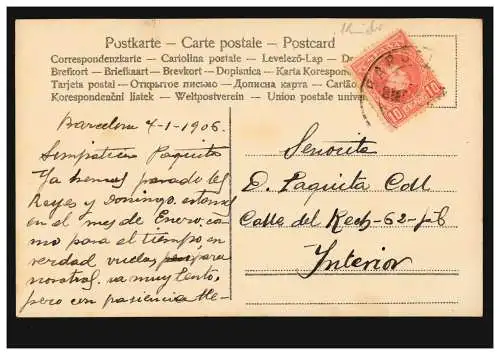 Postkarte – Carte postale – Postcard
Correspondenzkarte – Cartolina postale – Levelező-Lap – Do
Brefkort – Briefkaart – Brevkort – Dopisnica – Karta Korespon
Tarjeta postal – Открытое письмо – Дописна карта – Cartão
Korespondenční lístek – Weltpostverein – Union postale univer
10 10
Barcelona 7-1-1906.
Simpática Paquita
Ya hemos pasado los
Reyes y Domingo. estamos
en el mes de Enero, co-
mo para el tiempo, en
verdad vuela, para
nosotros. va muy lento,
pero con paciencia lle-
Señorita
D. Paquita Coll
Calle del Rech-62-
Interior